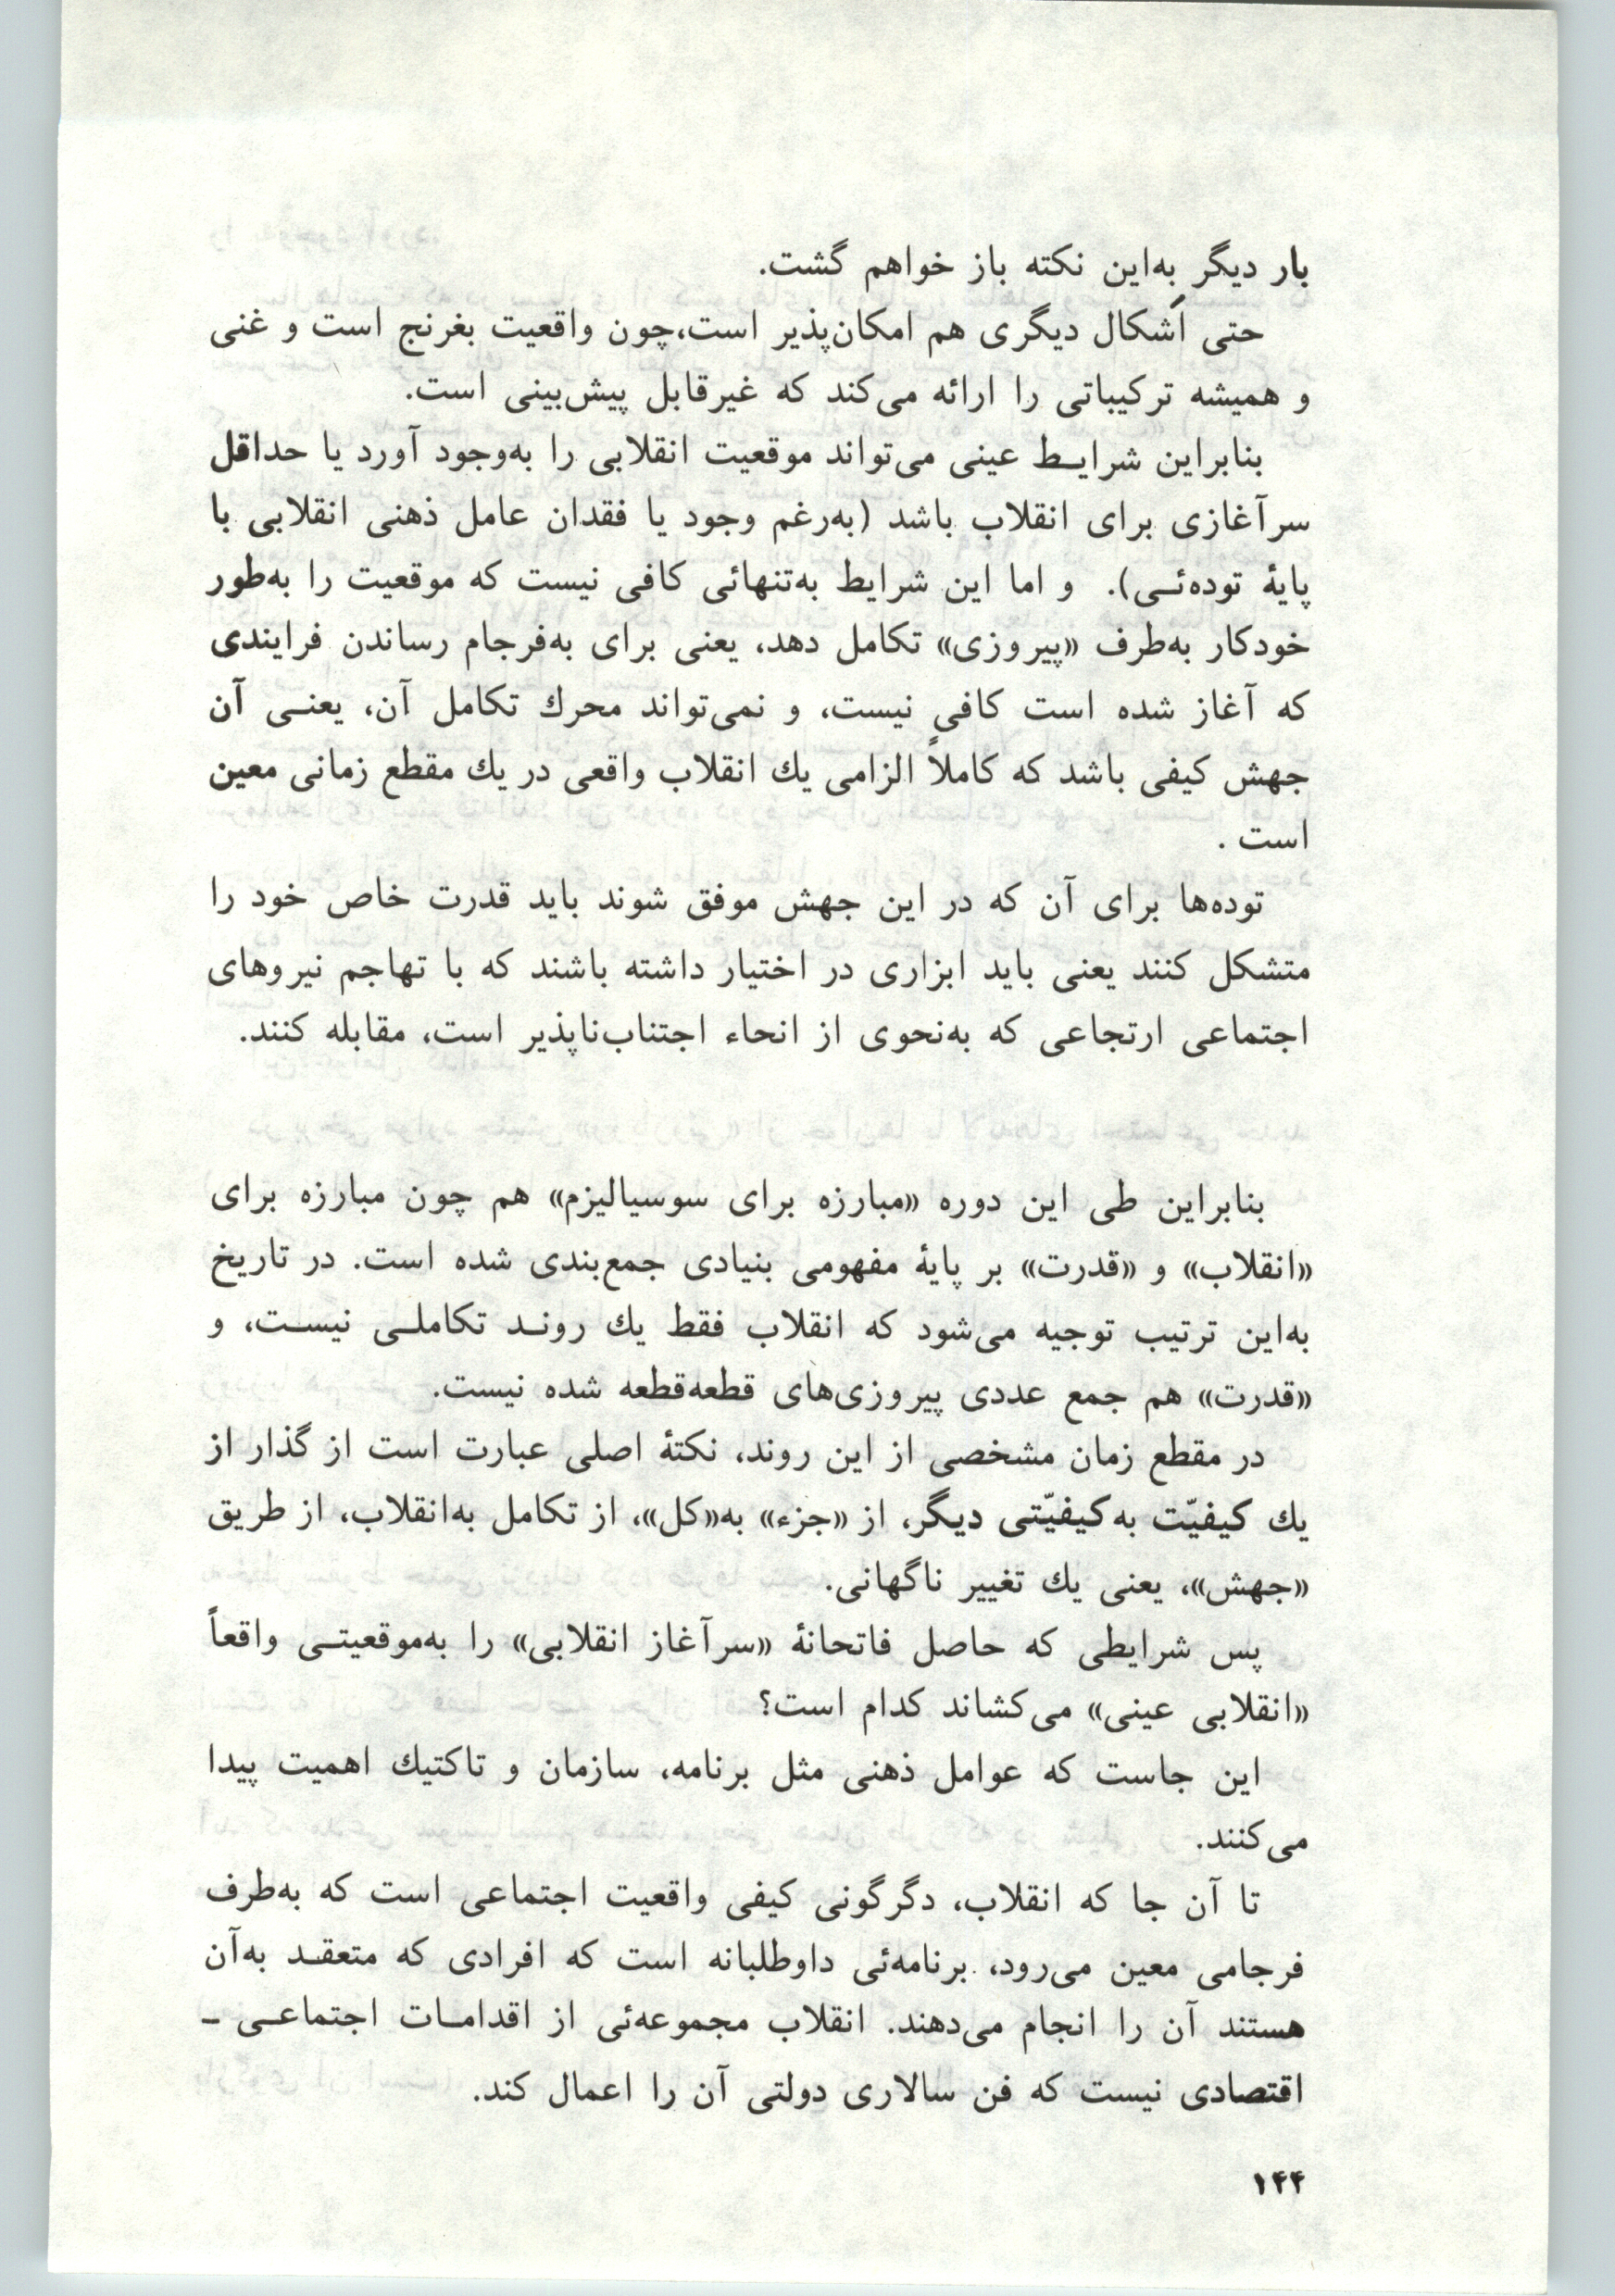 بار دیگر به‌این نکته باز خواهم گشت.
حتی اَشکال دیگری هم امکان‌پذیر است،چون واقعیت بغرنج است و غنی
و همیشه ترکیباتی را ارائه می‌کند که غیرقابل پیش‌بینی است.
بنابراین شرایــط عینی می‌تواند موقعیت انقلابی را به‌وجود آورد یا حداقل
سرآغازی برای انقلاب باشد (به‌رغم وجود یا فقدان عامل ذهنی انقلابی با
پایهٔ توده‌ئــی). و اما این شرایط به‌تنهائی کافی نیست که موقعیت را به‌طور
خودکار به‌طرف «پیروزی» تکامل دهد، یعنی برای به‌فرجام رساندن فرایندی
که آغاز شده است کافی نیست، و نمی‌تواند محرك تکامل آن، یعنــی آن
جهش کیفی باشد که کاملاً الزامی یك انقلاب واقعی در یك مقطع زمانی معین
است .
توده‌ها برای آن که در این جهش موفق شوند باید قدرت خاص خود را
متشکل کنند یعنی باید ابزاری در اختیار داشته باشند که با تهاجم نیروهای
اجتماعی ارتجاعی که به‌نحوی از انحاء اجتناب‌ناپذیر است، مقابله کنند.
بنابراین طی این دوره «مبارزه برای سوسیالیزم» هم چون مبارزه برای
«انقلاب» و «قدرت» بر پایهٔ مفهومی بنیادی جمع‌بندی شده است. در تاریخ
به‌این ترتیب توجیه می‌شود که انقلاب فقط یك رونــد تکاملــی نیســت، و
«قدرت» هم جمع عددی پیروزی‌های قطعه‌قطعه شده نیست.
در مقطع زمان مشخصی از این روند، نکتهٔ اصلی عبارت است از گذار از
یك کیفیّت به‌کیفیّتی دیگر، از «جزء» به«کل»، از تکامل به‌انقلاب، از طریق
«جهش»، یعنی یك تغییر ناگهانی.
پس شرایطی که حاصل فاتحانهٔ «سرآغاز انقلابی» را به‌موقعیتــی واقعاً
«انقلابی عینی» می‌کشاند کدام است؟
این جاست که عوامل ذهنی مثل برنامه، سازمان و تاکتیك اهمیت پیدا
می‌کنند.
تا آن جا که انقلاب، دگرگونی کیفی واقعیت اجتماعی است که به‌طرف
فرجامی معین می‌رود، برنامه‌ئی داوطلبانه است که افرادی که متعقــد به‌آن
هستند آن را انجام می‌دهند. انقلاب مجموعه‌ئی از اقدامــات اجتماعــی ـ
اقتصادی نیست که فن سالاری دولتی آن را اعمال کند.
۱۴۴